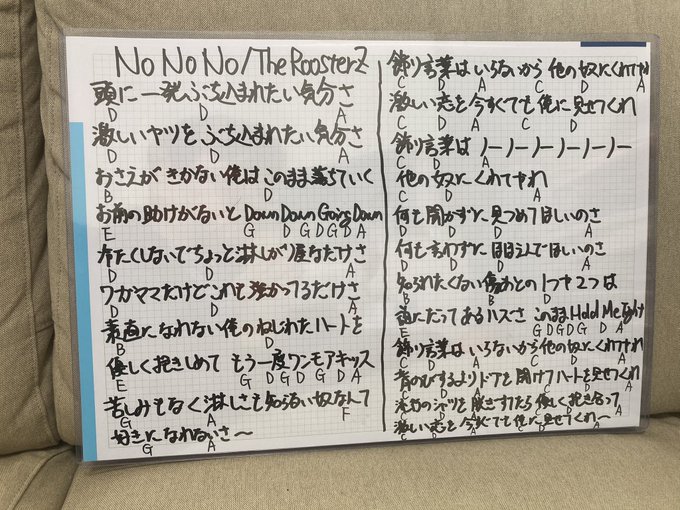 No No No/The RoosterZ
頭に一発ぶち込まれたい気分さ
D D A
激しいヤツをぶち込まれたい気分さ
D D A
おさえがきかない俺はこのまま落ちていく
B D
お前の助けがないと Down Down Going Down
E G D G D G D A
冷たくしないでちょっと淋しがり屋なだけさ
D D A
ワガママだけどこれも強がってるだけさ
D D A
素直になれない俺のねじれたハートを
B D
優しく抱きしめて もう一度ワンモアキッス
E G D G D G D A
苦しみもなく淋しさも知らない奴なんて
G A F
好きになれないさ〜
G A
飾り言葉はいらないから 他の奴にくれてやれ
C D A C D A
激しい恋を今すぐでも俺に見せてくれ
C D A C D
飾り言葉は ノーノーノーノーノーノー
C D A
他の奴にくれてやれ
C D A
何も聞かずに見つめてほしいのさ
D D A
何も言わずにほほえんでほしいのさ
D D A
知られたくない傷あとの1つや2つは
B B D
誰にだってあるハズさ このままHold Me Tight
E G D G D G D A
飾り言葉はいらないから他の奴にくれてやれ
C D A C D A
背のびするよりドアを開けてハートを見せてくれ
C D A C D A
シャツを脱ぎすてたら優しく抱き合って
C D A C D A
激しい恋を今すぐでも俺に見せてくれ〜
C D A C D A